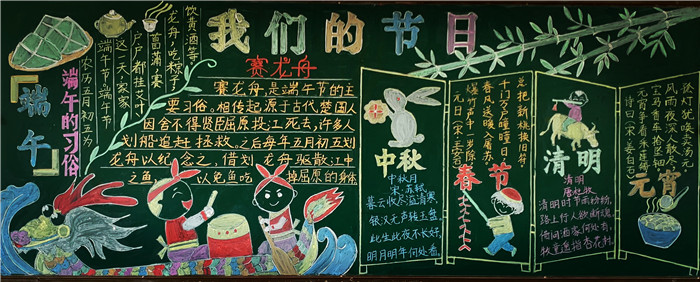 我们的节日
『端午』
端午的习俗
农历五月初五为
端午节端午节
这一天，家家
户户都挂艾叶
菖蒲，赛
龙舟，吃粽子
饮黄酒等
赛龙舟
赛龙舟，是端午节的主
要习俗。相传起源于古代楚国人
因舍不得贤臣屈原投江死去，许多人
划船追赶拯救。之后每年五月初五划
龙舟以纪念之，借划龙舟驱散江中
之鱼，以免鱼吃掉屈原的身体
中秋
中秋月
宋：苏轼
暮云收尽溢清寒，
银汉无声转玉盘，
此生此夜不长好，
明月明年何处看。
春节
元日（宋：王安石）
爆竹声中一岁除
春风送暖入屠苏。
千门万户曈曈日
总把新桃换旧符。
清明
清明
唐杜牧
清明时节雨纷纷，
路上行人欲断魂。
借问酒家何处有，
牧童遥指杏花村。
元宵
诗曰（宋：姜白石）
元宵争看采莲船
宝马香车拾坠钿
风雨夜深人散尽
孤灯犹唤卖汤元。